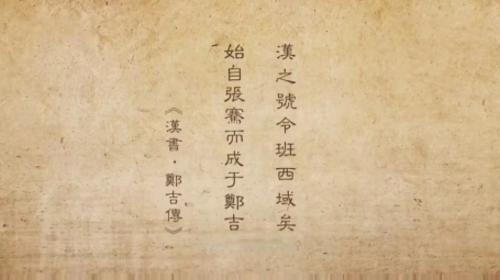 漢之號令班西域矣
始自張騫而成于鄭吉
《漢書·鄭吉傳》